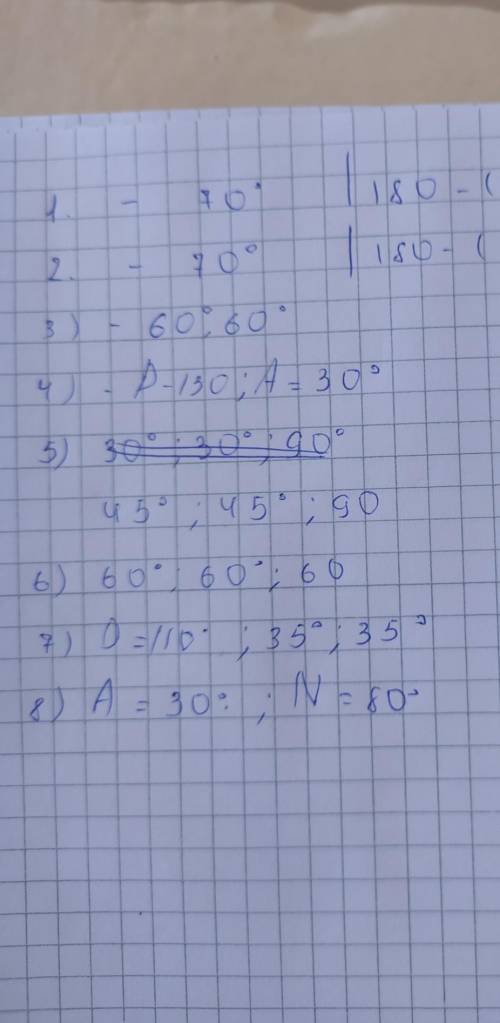 1. - 70° | 180 - (
2. - 70° | 180 - (
3) - 60°; 60°
4) - D - 130; A = 30°
5) 30°; 30°; 90°
45°; 45°; 90
6) 60°; 60°; 60
7) D = 110°; 35°; 35°
8) A = 30°; N = 80°